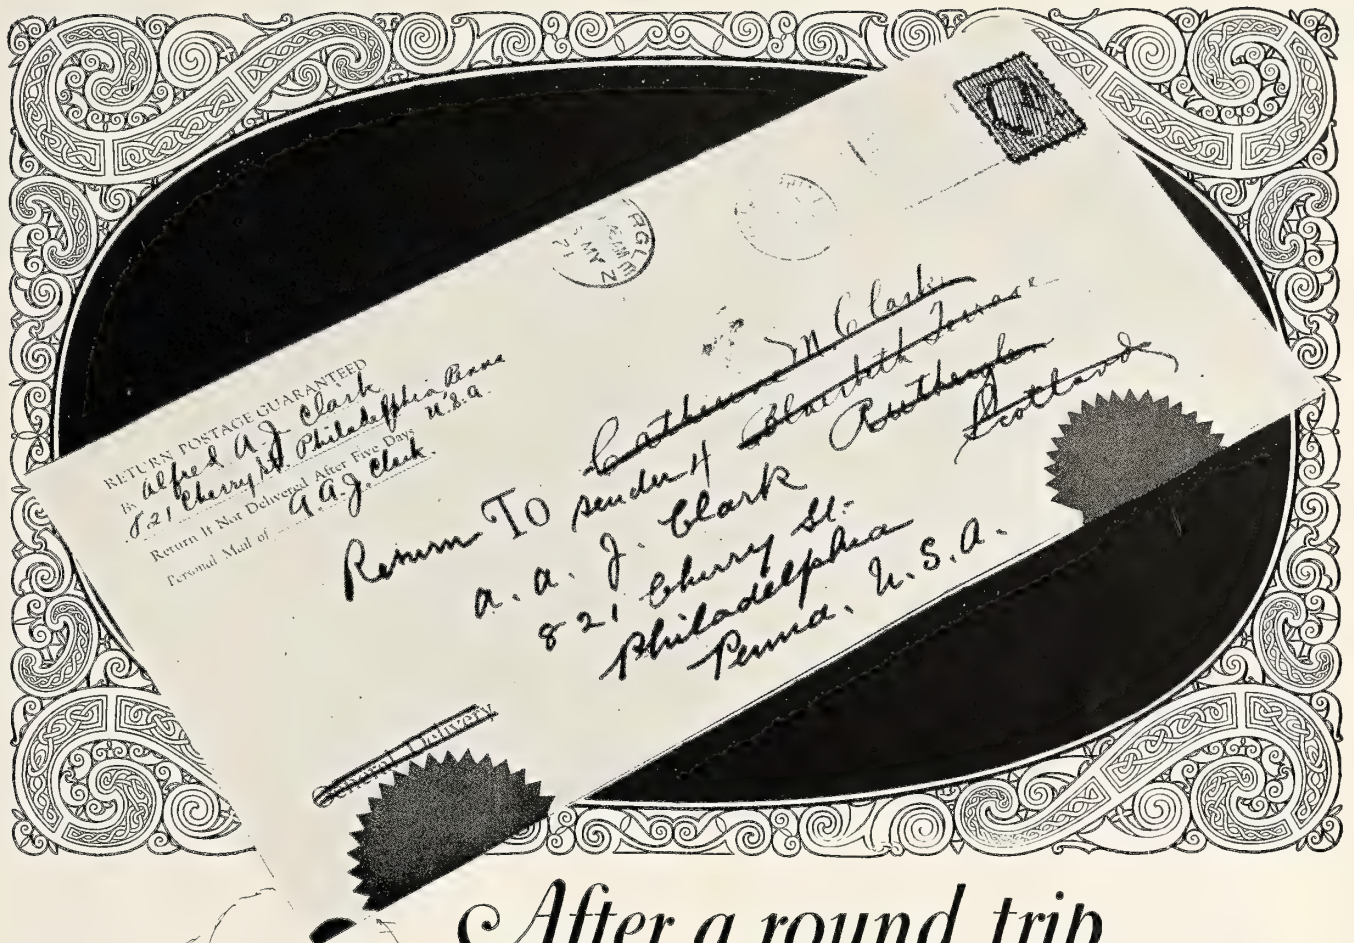 RETURN POSTAGE GUARANTEED
By Alfred A. J. Clark
821 Cherry St. Philadelphia Penna
U.S.A.
Return If Not Delivered After Five Days
Personal Mail of A. A. J. Clark.
RGLEN
MY
21
Catherine M Clark
4 Terrace
Rutherglen
Scotland
Return To sender
A. A. J. Clark
821 Cherry St.
Philadelphia
Penna. U. S. A.
General Delivery
After a round trip